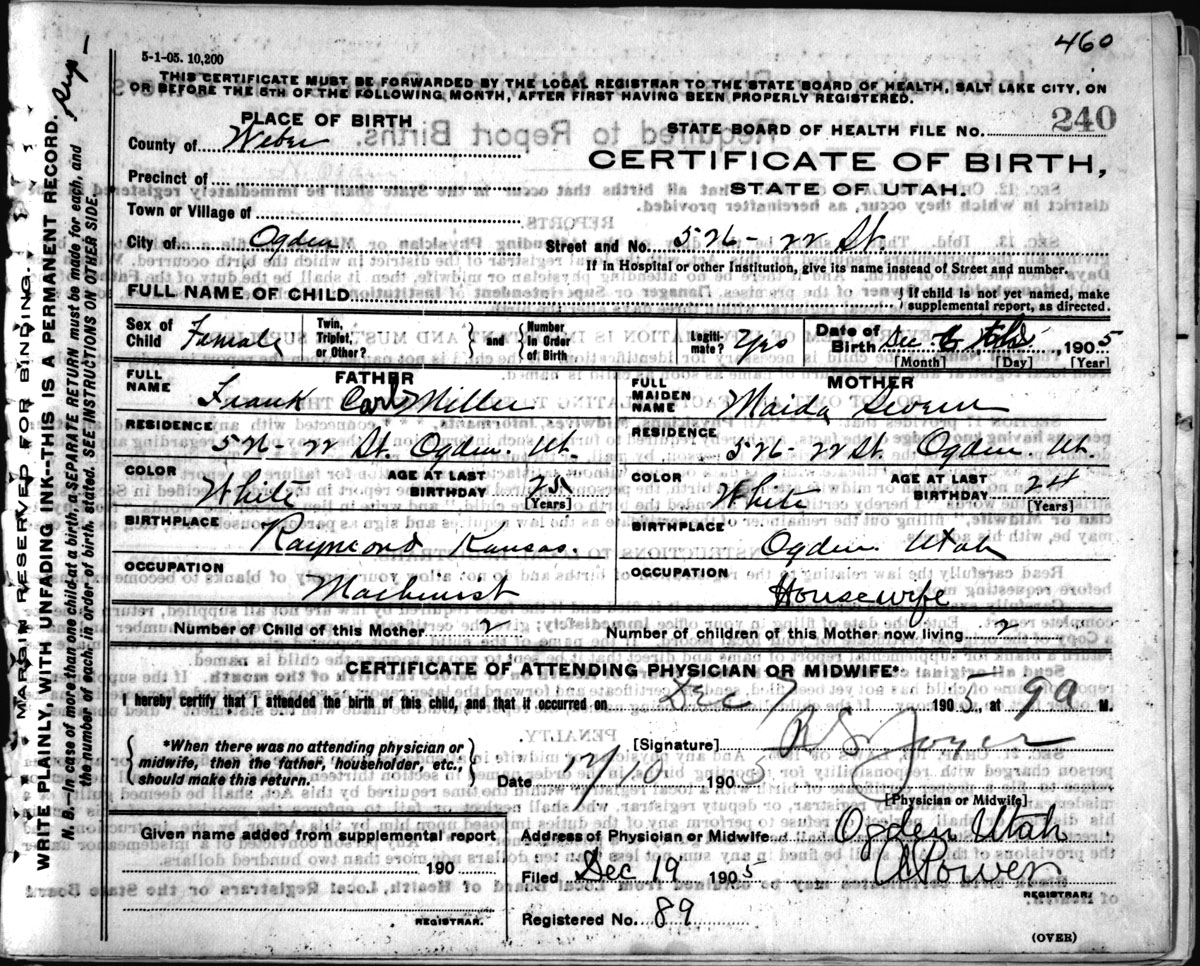 460
5-1-05. 10,200
THIS CERTIFICATE MUST BE FORWARDED BY THE LOCAL REGISTRAR TO THE STATE BOARD OF HEALTH, SALT LAKE CITY, ON
OR BEFORE THE 5TH OF THE FOLLOWING MONTH, AFTER FIRST HAVING BEEN PROPERLY REGISTERED.
PLACE OF BIRTH
STATE BOARD OF HEALTH FILE NO. 240
County of Weber
CERTIFICATE OF BIRTH,
Precinct of
STATE OF UTAH.
Town or Village of
City of Ogden
Street and No. 526 - 22 St.
If in Hospital or other Institution, give its name instead of Street and number.
FULL NAME OF CHILD
} If child is not yet named, make
supplemental report, as directed.
Sex of Child Female
Twin, Triplet, or Other?
} and {
Number in Order of Birth
Legiti-mate? Yes
Date of Birth Dec 190 5
[Month] [Day] [Year]
FATHER
FULL NAME Frank Carl Miller
RESIDENCE
526 - 22 St. Ogden Ut.
COLOR White
AGE AT LAST BIRTHDAY 25 [Years]
BIRTHPLACE
Raymond Kansas.
OCCUPATION
Machinist
MOTHER
FULL MAIDEN NAME Maida
RESIDENCE
526 22 St. Ogden Ut.
COLOR White
AGE AT LAST BIRTHDAY 24 [Years]
BIRTHPLACE
Ogden Utah
OCCUPATION
Housewife
Number of Child of this Mother 2
Number of children of this Mother now living 2
CERTIFICATE OF ATTENDING PHYSICIAN OR MIDWIFE*
I hereby certify that I attended the birth of this child, and that it occurred on Dec 7 190 5, at 9 a M.
{ *When there was no attending physician or
midwife, then the father, householder, etc.,
should make this return. }
[Signature] R S Joyce
Date 12/10 190 5
[Physician or Midwife]
Given name added from supplemental report
190
REGISTRAR.
Address of Physician or Midwife Ogden Utah
Filed Dec 19 190 5
REGISTRAR.
Registered No. 89
(OVER)
MARGIN RESERVED FOR BINDING.
WRITE PLAINLY, WITH UNFADING INK--THIS IS A PERMANENT RECORD.
N. B.—In case of more than one child at a birth, a SEPARATE RETURN must be made for each, and
the number of each, in order of birth, stated. SEE INSTRUCTIONS ON OTHER SIDE.